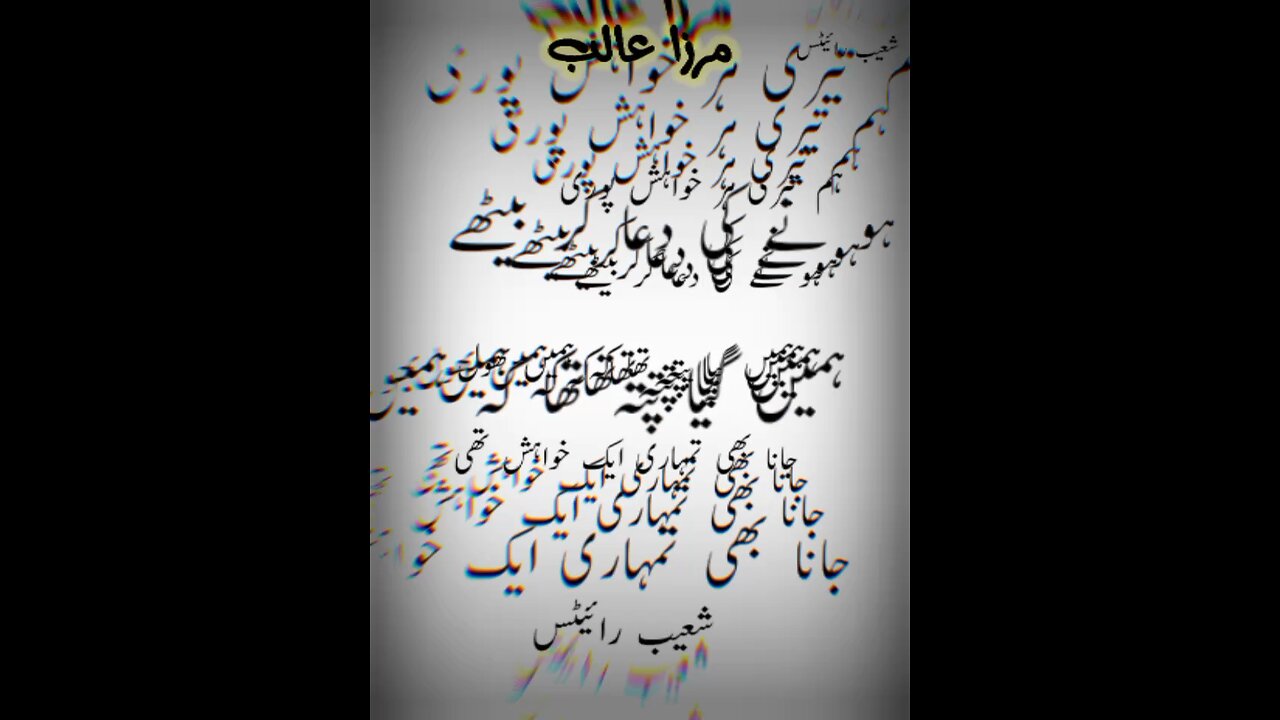 مرزا غالب
شعیب رائیٹس
ہم تیری ہر خواہش پوری
ہم تیری ہر خواہش پوری
ہم تیری ہر خواہش پوری
ہم تیری ہر خواہش پوری
ہونے کی دعا کر بیٹھے
ہمیں کیا پتہ تھا کہ ہمیں بھول
جانا بھی تمہاری ایک خواہش تھی
جانا بھی تمہاری ایک خواہش
جانا بھی تمہاری ایک خواہش
جانا بھی تمہاری ایک
شعیب رائیٹس